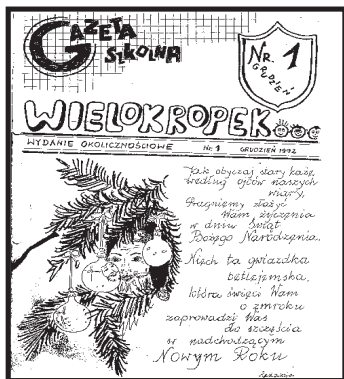 GAZETA
SZKOLNA
NR. 1
GRUDZIEŃ
WIELOKROPEK
WYDANIE OKOLICZNOŚCIOWE Nr. 1 GRUDZIEŃ 1992
Jak obyczaj stary każe
według ojców naszych
wiary,
Pragniemy złożyć
Wam życzenia
w dniu Świąt
Bożego Narodzenia.
Niech ta gwiazdka
betlejemska,
która świeci Wam
o zmroku
zaprowadzi Was
do szczęścia
w nadchodzącym
Nowym Roku